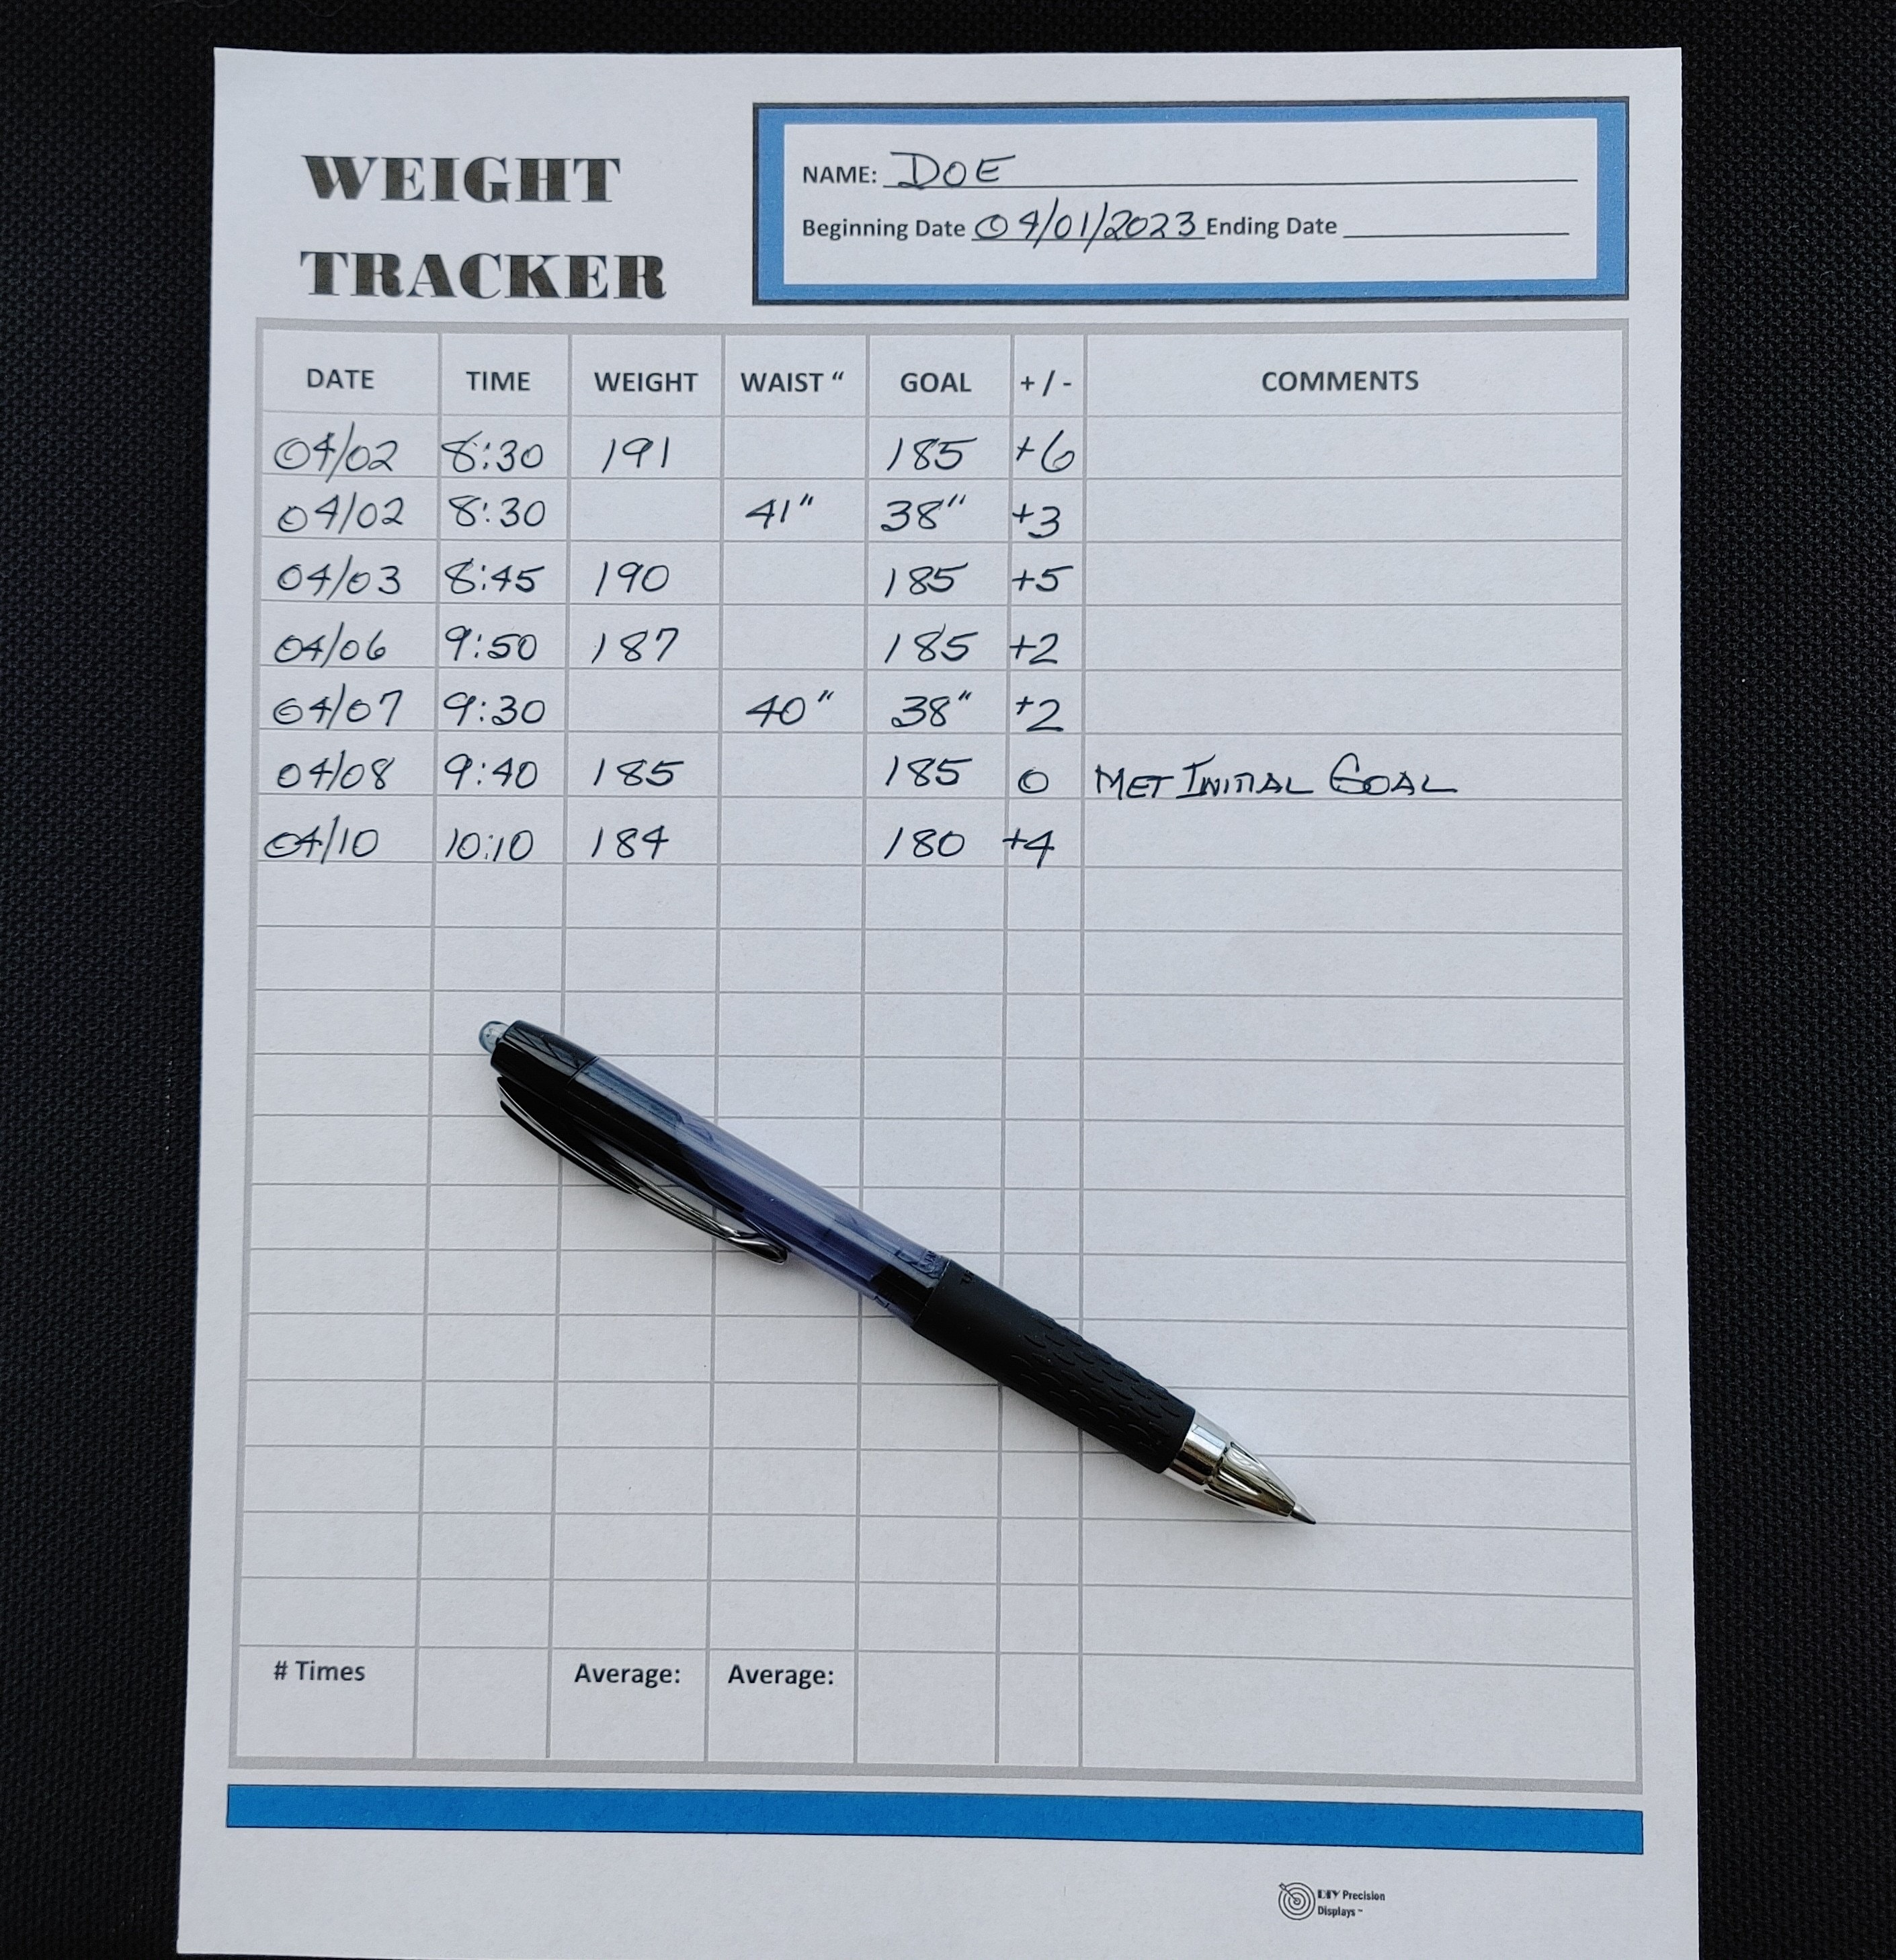 WEIGHT
TRACKER
NAME: DOE
Beginning Date 04/01/2023 Ending Date
DATE TIME WEIGHT WAIST “ GOAL + / - COMMENTS
04/02 8:30 191 185 +6
04/02 8:30 41" 38" +3
04/03 8:45 190 185 +5
04/06 9:50 187 185 +2
04/07 9:30 40" 38" +2
04/08 9:40 185 185 0 MET INITIAL GOAL
04/10 10:10 184 180 +4
# Times Average: Average:
DIY Precision
Displays™